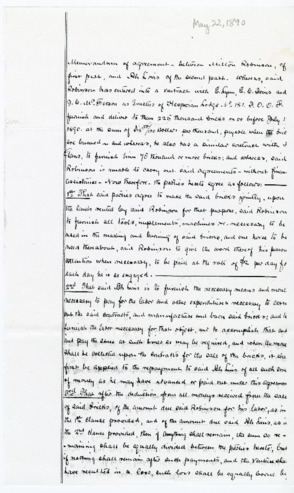 May 22, 1890
Memorandum of agreement - between Milton Robinson, of
first part, and Ah Louis of the second part. Whereas, said
Robinson has entered into a contract with
and as Trustees of Hesperian Lodge No. 181. I. O. O. F.
furnish and deliver to them 225 thousand brick on or before July 1
1890. at the sum of Six dollars per thousand, payable when the brick
are burned in and whereas, he also has a similar contract with
to furnish him 75 thousand or more brick; and whereas, said
Robinson is unable to carry out said agreements - without finan-
cial assistance - Now therefore. the parties hereto agree as follows:
1st That said parties agree to make the said bricks jointly, upon
the lands rented by said Robinson for that purpose, said Robinson
to furnish all tools, implements, machines &c. necessary to be
used in the making and burning of said bricks, and one horse to be
used thereabout, said Robinson to give the work there of his person
attention when necessary, to be paid at the rate of per day for
each day he is so engaged.
2nd That said Ah Louis is to furnish the necessary means and money
necessary to pay for the labor and other expenditures necessary to carry
out the said contracts, and manufacture and burn said bricks; and to
furnish the labor necessary for that object, and to accomplish that end
and pay the same at such times as may be required, and when the money
shall be collected upon the contracts for the sale of the bricks, it shall
first be applied to the repayment to said Ah Louis of all such sum
of money as he may have advanced or paid out under this agreement
3rd That after the deduction, from all moneys received from the sale
of said bricks, of the amount due said Robinson for his labor, as in
the 1st clause provided, and of the amount due said Ah Louis, as in
the 2nd clause provided, then if anything shall remain, the sum so re-
maining shall be equally divided between the parties hereto, but
if nothing shall remain after such payments, and the venture shall
have resulted in a loss, such loss shall be equally borne by